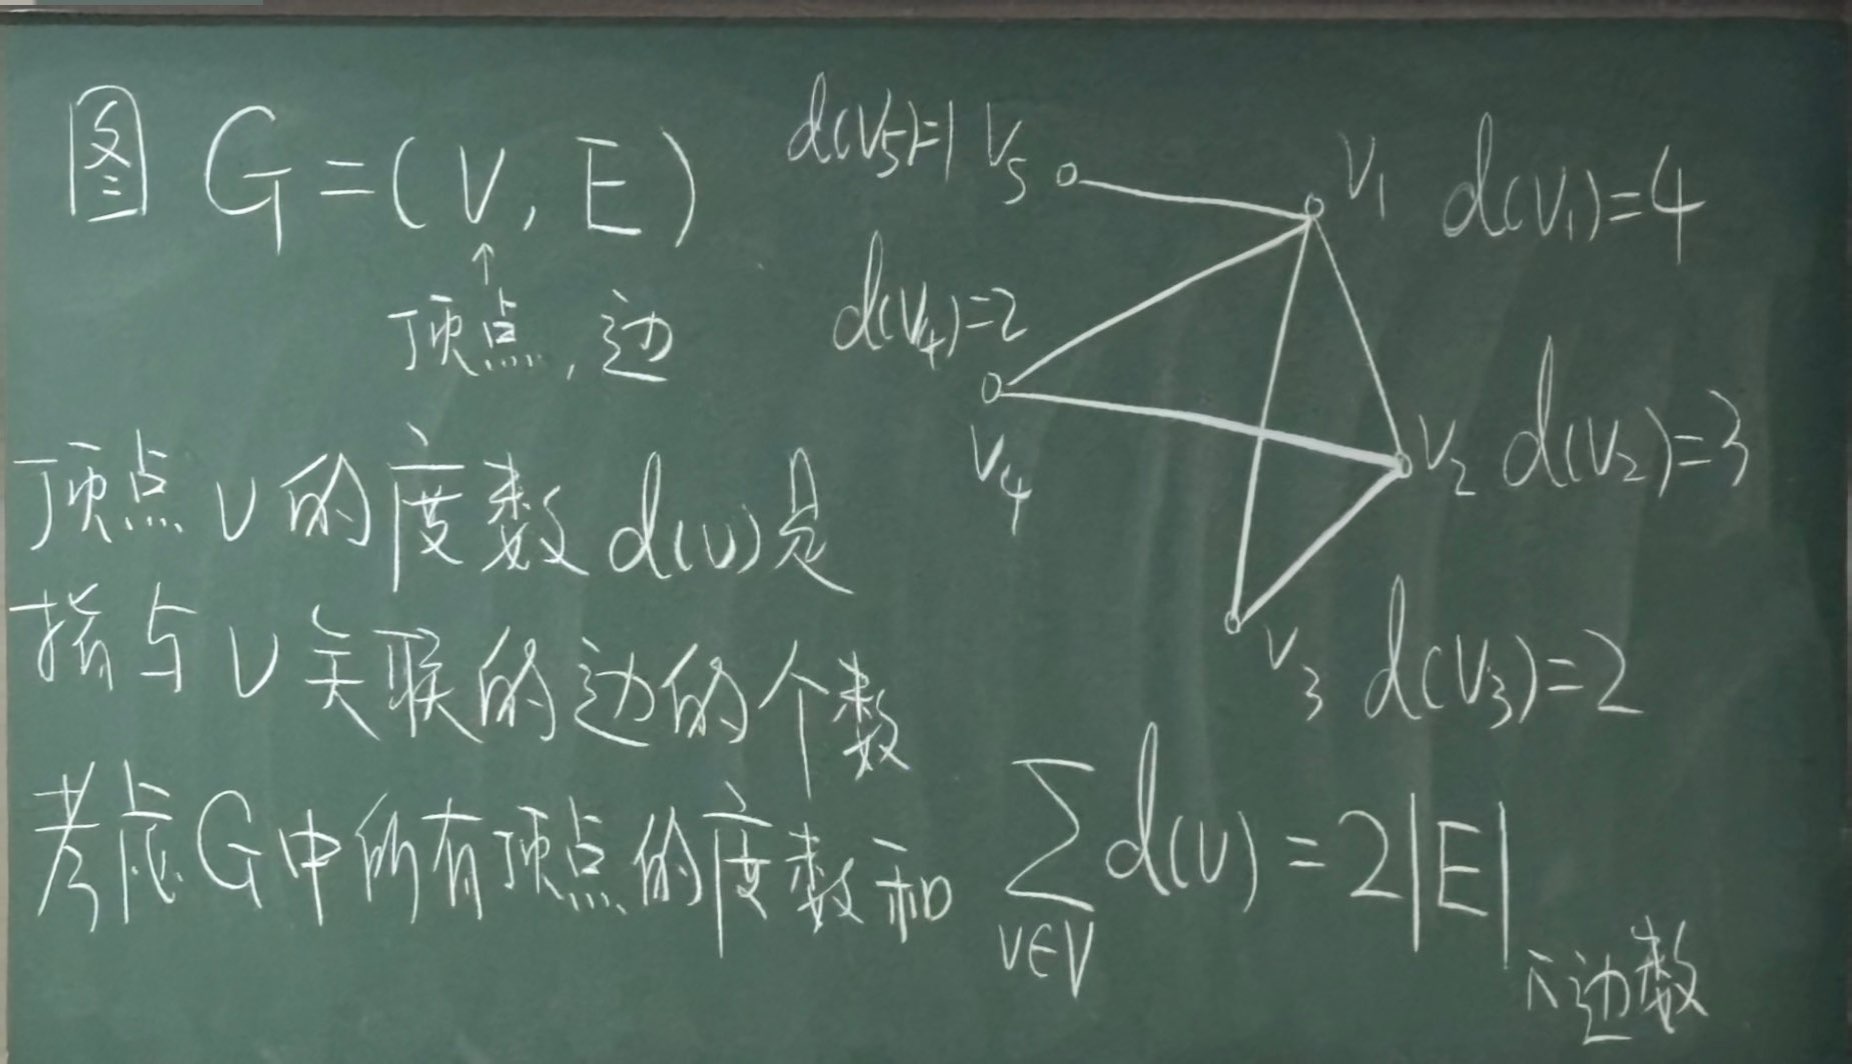 图 G=(V,E)
↑
顶点,边
顶点v的度数d(v)是
指与v关联的边的个数
考虑G中所有顶点的度数和 ∑ d(v) = 2|E|
v∈V
边数
d(v5)=1 v5
v1 d(v1)=4
d(v4)=2
v4
v2 d(v2)=3
v3 d(v3)=2